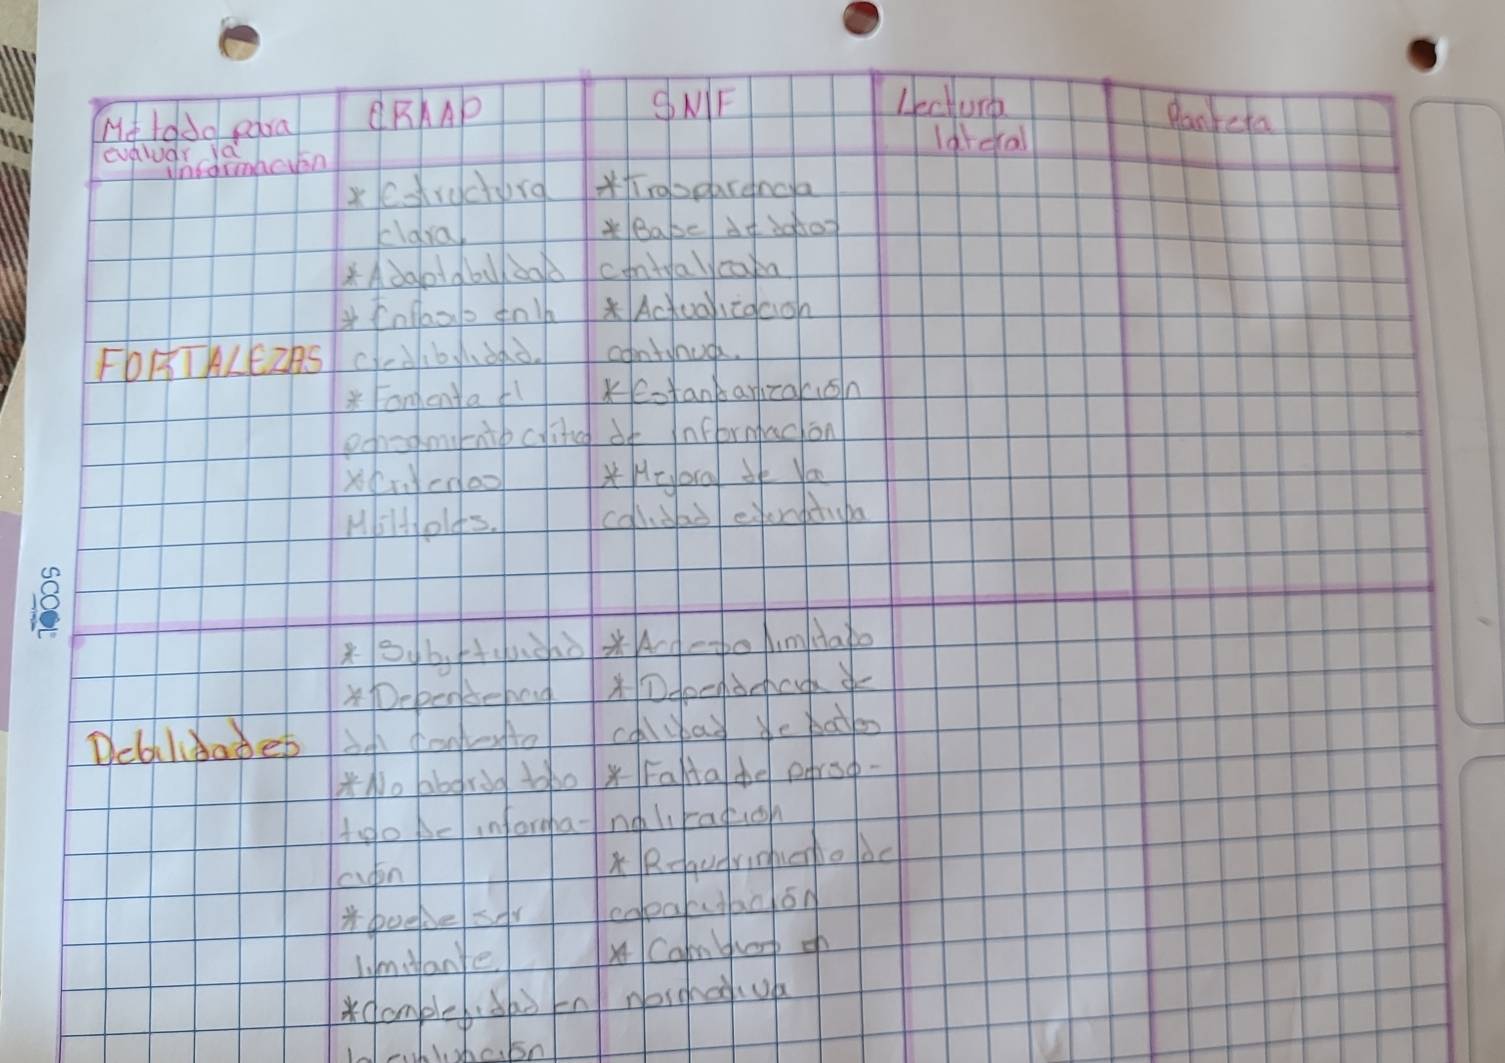 Metodo para
evaluar la
informacion
CRAAP
SNIF
Lectura
lateral
Pantera
FORTALEZAS
* Estructura
clara.
* Adaptabilidad
* Enfasis en la
credibilidad.
* Fomenta el
pensamiento critico
* Criterios
Múltiples.
* Trasparencia
* Base de datos
* Actualización
continua.
* Estandarización
de información
* Mejora de la
calidad
Debilidades
* Subjetividad
* Dependencia
del contexto
* No aborda todo
tipo de informa-
ción
* puede ser
limitante.
* Complejidad en
la evaluación
* Acceso limitado
* Dependencia de
calidad de datos
* Falta de perso-
nalización
* Requerimiento de
capacitación
* Cambios en
normativa
SCOOL